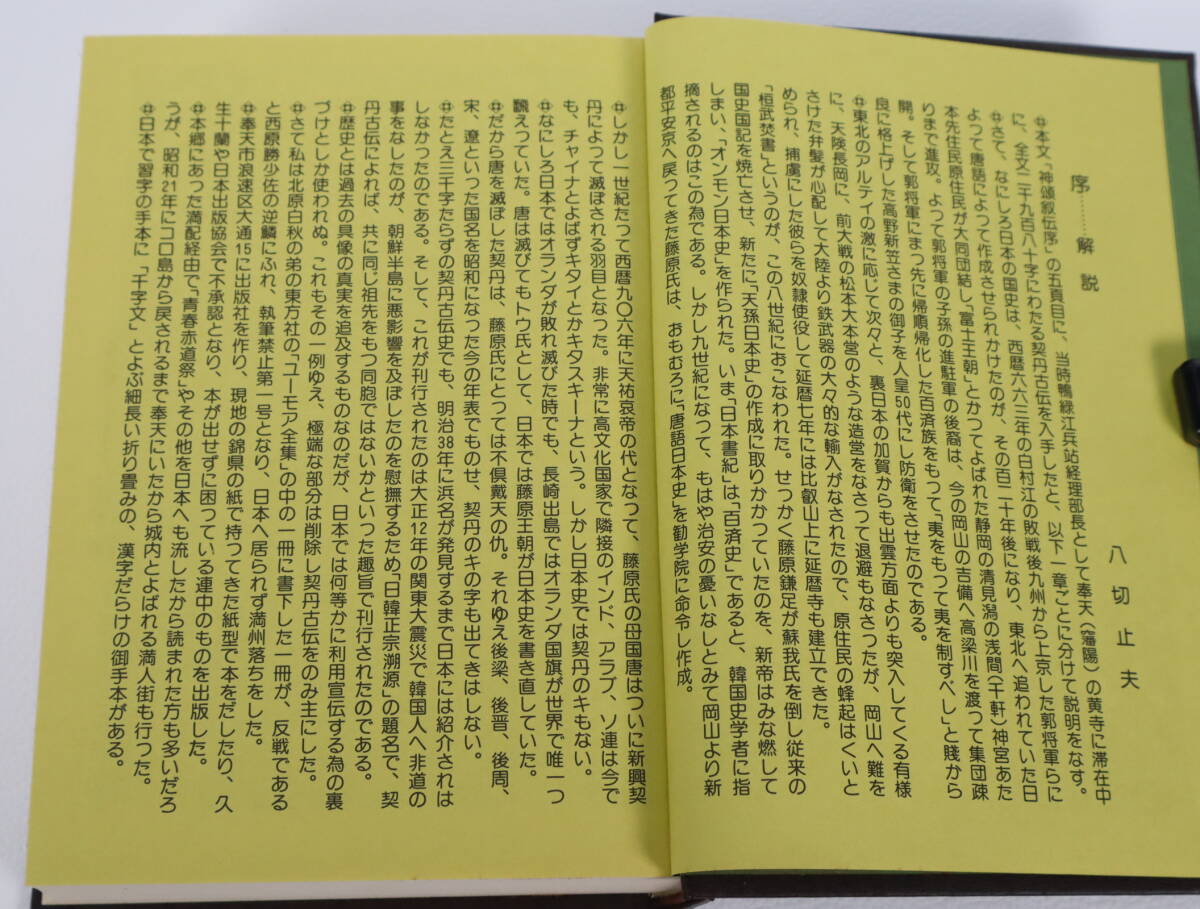 序……解説
八切止夫
⌗本文「神頌叙伝序」の五頁目に、当時鴨緑江兵站経理部長として奉天(瀋陽)の黄寺に滞在中
に、全文二千九百八十字にわたる契丹古伝を入手したと、以下一章ごとに分けて説明をなす。
⌗さて、なにしろ日本の国史は、西暦六六三年の白村江の敗戦後九州から上京した郭将軍らに
よって唐語によって作成させられかけたのが、その百二十年後になり、東北へ追われていた日
本先住民原住民が大同団結し「富士王朝」とかつてよばれた静岡の清見潟の浅間(千軒)神宮あた
りまで進攻。よって郭将軍の子孫の進駐軍の後裔は、今の岡山の吉備へ高梁川を渡って集団疎
開。そして郭将軍にまっ先に帰順帰化した百済族をもって「夷をもって夷を制すべし」と賤から
良に格上げした高野新笠さまの御子を人皇50代にし防衛をさせたのである。
⌗東北のアルティの激に応じて次々と、裏日本の加賀からも出雲方面よりも突入してくる有様
に、天険長岡に、前大戦の松本大本営のような造営をなさって退避もなさったが、岡山へ難を
さけた弁髪が心配して大陸より鉄武器の大々的な輸入がなされたので、原住民の蜂起はくいと
められ、捕虜にした彼らを奴隷使役して延暦七年には比叡山上に延暦寺も建立できた。
「桓武焚書」というのが、この八世紀におこなわれた。せっかく藤原鎌足が蘇我氏を倒し従来の
国史国記を焼亡させ、新たに「天孫日本史」の作成に取りかかっていたのを、新帝はみな燃して
しまい、「オンモン日本史」を作られた。いま「日本書紀」は「百済史」であると、韓国史学者に指
摘されるのはこの為である。しかし九世紀になって、もはや治安の憂いなしとみて岡山より新
都平安京へ戻ってきた藤原氏は、おもむろに「唐語日本史」を勧学院に命令し作成。
⌗しかし一世紀たって西暦九〇六年に天祐哀帝の代となって、藤原氏の母国唐はついに新興契
丹によって滅ぼされる羽目となった。非常に高文化国家で隣接のインド、アラブ、ソ連は今で
も、チャイナとよばずキタイとかキタスキーナという。しかし日本史では契丹のキもない。
⌗なにしろ日本ではオランダが敗れ滅びた時でも、長崎出島ではオランダ国旗が世界で唯一つ
飜えっていた。唐は滅びてもトウ氏として、日本では藤原王朝が日本史を書き直していた。
⌗だから唐を滅ぼした契丹は、藤原氏にとっては不倶戴天の仇。それゆえ後梁、後晋、後周、
宋、遼といった国名を昭和になった今の年表でものせ、契丹のキの字も出てきはしない。
⌗たとえ三千字たらずの契丹古伝史でも、明治38年に浜名が発見するまで日本には紹介されは
しなかったのである。そして、これが刊行されたのは大正12年の関東大震災で韓国人へ非道の
事をなしたのが、朝鮮半島に悪影響を及ぼしたのを慰撫するため「日韓正宗溯源」の題名で、契
丹古伝によれば、共に同じ祖先をもつ同胞ではないかといった趣旨で刊行されたのである。
⌗歴史とは過去の具像の真実を追及するものなのだが、日本では何等かに利用宣伝する為の裏
づけとしか使われぬ。これもその一例ゆえ、極端な部分は削除し契丹古伝をのみ主にした。
⌗さて私は北原白秋の弟の東方社の「ユーモア全集」の中の一冊に書下した一冊が、反戦である
と西原勝少佐の逆鱗にふれ、執筆禁止第一号となり、日本へ居られず満州落ちをした。
⌗奉天市浪速区大通15に出版社を作り、現地の錦県の紙で持ってきた紙型で本をだしたり、久
生十蘭や日本出版協会で不承認となり、本が出せずに困っている連中のものを出版した。
⌗本郷にあった満配経由で「青春赤道祭」やその他を日本へも流したから読まれた方も多いだろ
うが、昭和21年にコロ島から戻されるまで奉天にいたから城内とよばれる満人街も行った。
⌗日本で習字の手本に「千字文」とよぶ細長い折り畳みの、漢字だらけの御手本がある。